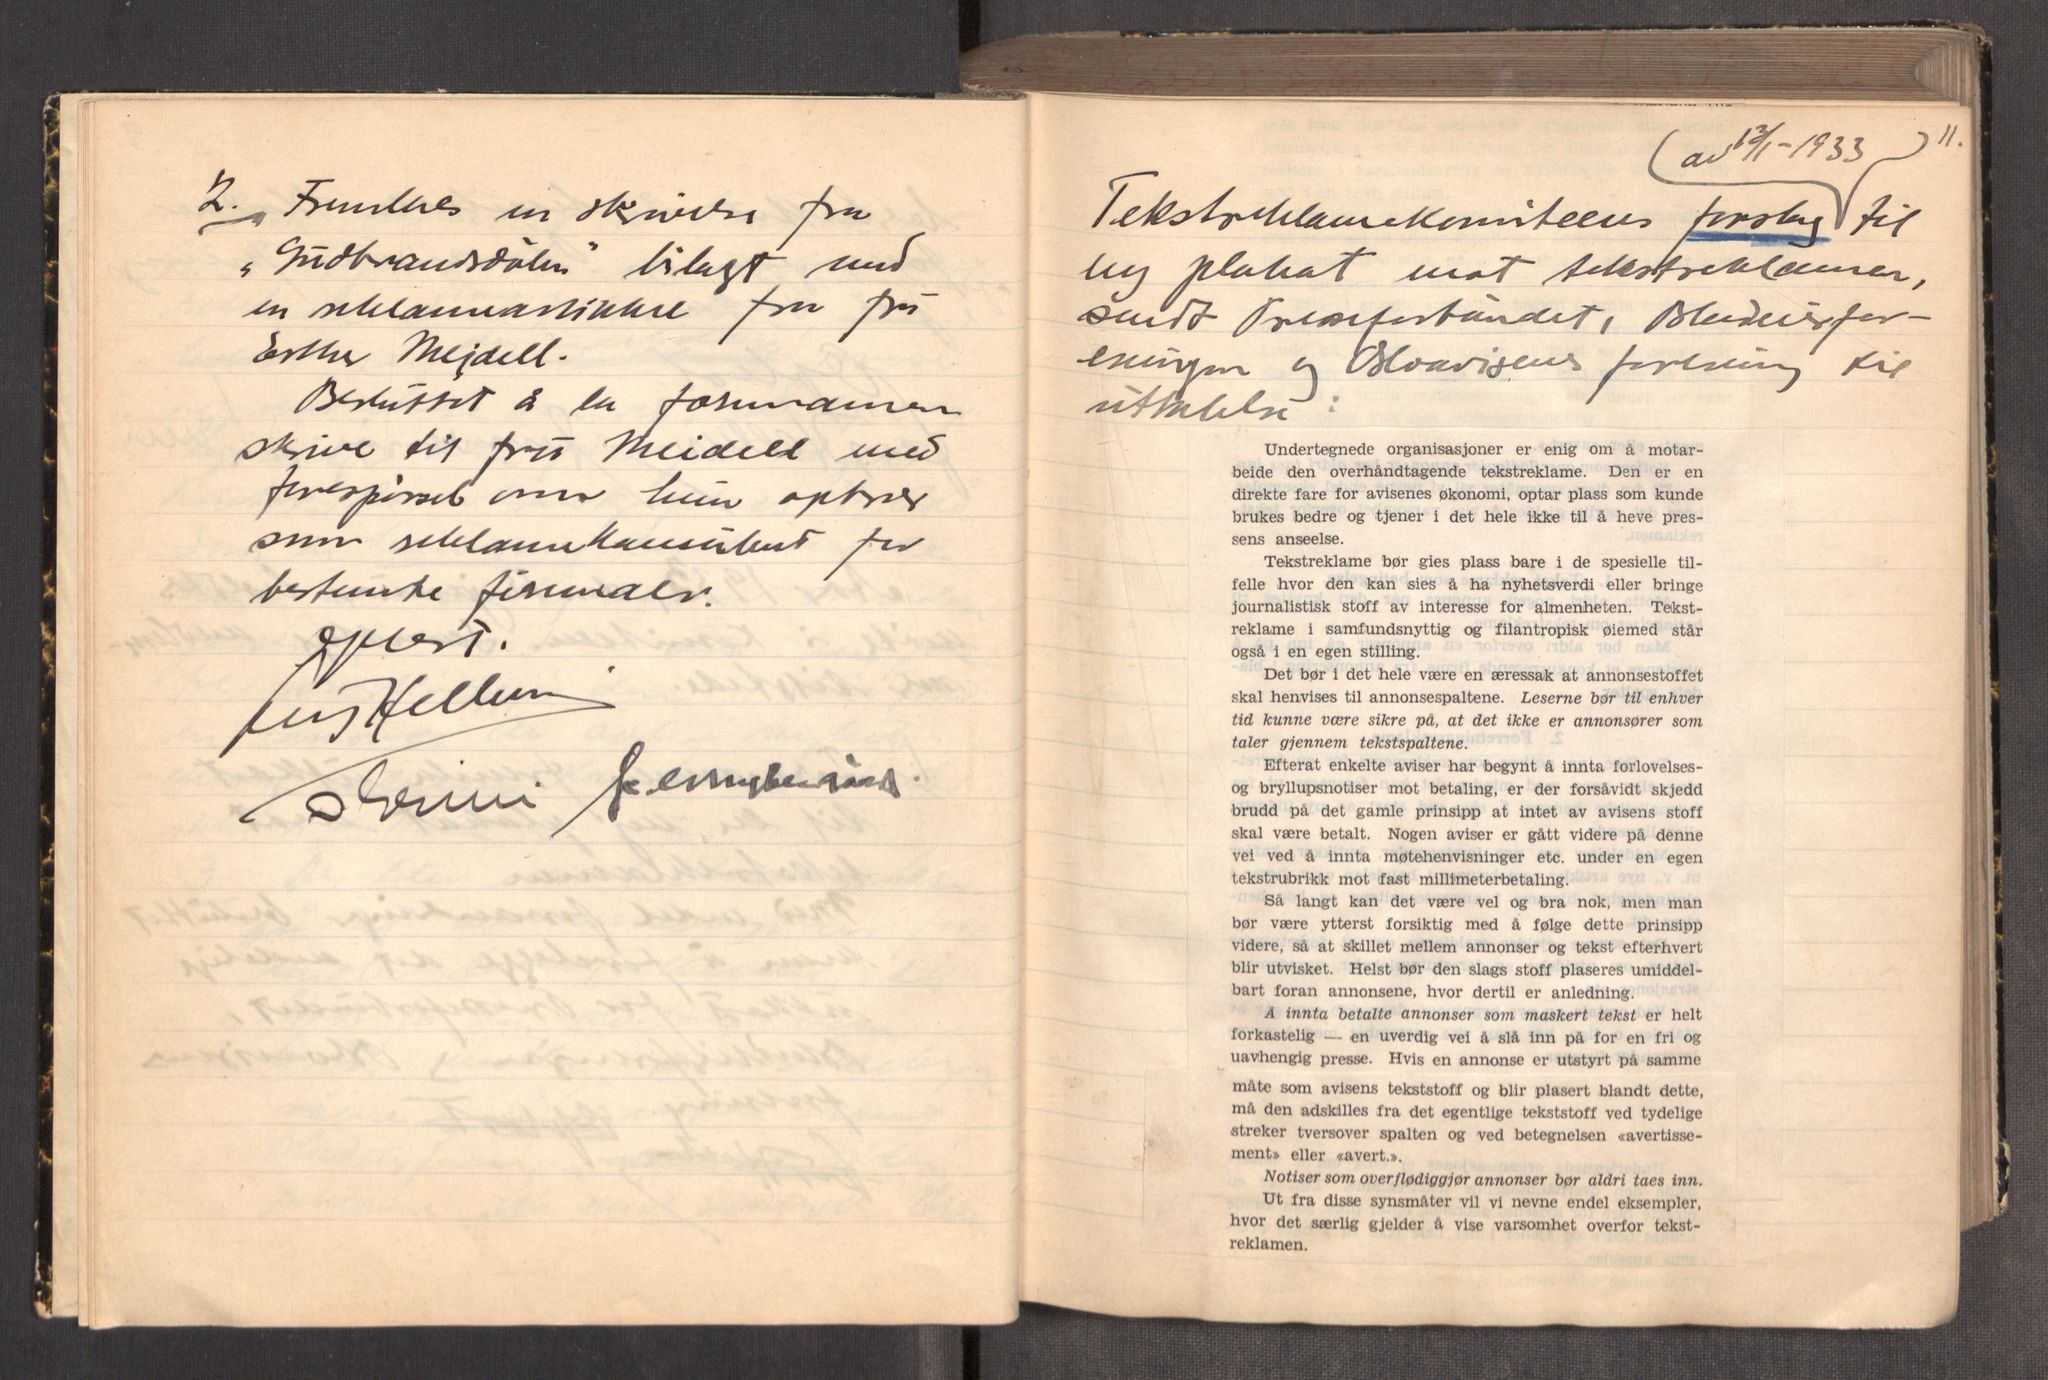 2. Fremlæs en skrivelse fra
„Gudbrandsdølen" bilagt med
en reklameartikkel fra fru
Esther Meidell.
Besluttet å la formannen
skrive til fru Meidell med
forespørsel om hun optrer
som reklamekonsulent for
bestemte firmaer.
Opl​est.
Hellum
11.
av 12/1-1933
Tekstreklamekomiteens forslag til
ny plakat mot tekstreklamen,
sendt Presseforbundet, Bladeierfor-
eningen og Osloavisenes forening til
uttalelse:
Undertegnede organisasjoner er enig om å motar-
beide den overhåndtagende tekstreklame. Den er en
direkte fare for avisenes økonomi, optar plass som kunde
brukes bedre og tjener i det hele ikke til å heve pres-
sens anseelse.
Tekstreklame bør gies plass bare i de spesielle til-
felle hvor den kan sies å ha nyhetsverdi eller bringe
journalistisk stoff av interesse for almenheten. Tekst-
reklame i samfundsnyttig og filantropisk øiemed står
også i en egen stilling.
Det bør i det hele være en æressak at annonsestoffet
skal henvises til annonsespaltene. Leserne bør til enhver
tid kunne være sikre på, at det ikke er annonsører som
taler gjennem tekstspaltene.
Efterat enkelte aviser har begynt å innta forlovelses-
og bryllupsnotiser mot betaling, er der forsåvidt skjedd
brudd på det gamle prinsipp at intet av avisens stoff
skal være betalt. Nogen aviser er gått videre på denne
vei ved å innta møtehenvisninger etc. under en egen
tekstrubrikk mot fast millimeterbetaling.
Så langt kan det være vel og bra nok, men man
bør være ytterst forsiktig med å følge dette prinsipp
videre, så at skillet mellem annonser og tekst efterhvert
blir utvisket. Helst bør den slags stoff plaseres umiddel-
bart foran annonsene, hvor dertil er anledning.
Å innta betalte annonser som maskert tekst er helt
forkastelig — en uverdig vei å slå inn på for en fri og
uavhengig presse. Hvis en annonse er utstyrt på samme
måte som avisens tekststoff og blir plasert blandt dette,
må den adskilles fra det egentlige tekststoff ved tydelige
streker tversover spalten og ved betegnelsen «avertisse-
ment» eller «avert.».
Notiser som overflødiggjør annonser bør aldri taes inn.
Ut fra disse synsmåter vil vi nevne endel eksempler,
hvor det særlig gjelder å vise varsomhet overfor tekst-
reklamen.